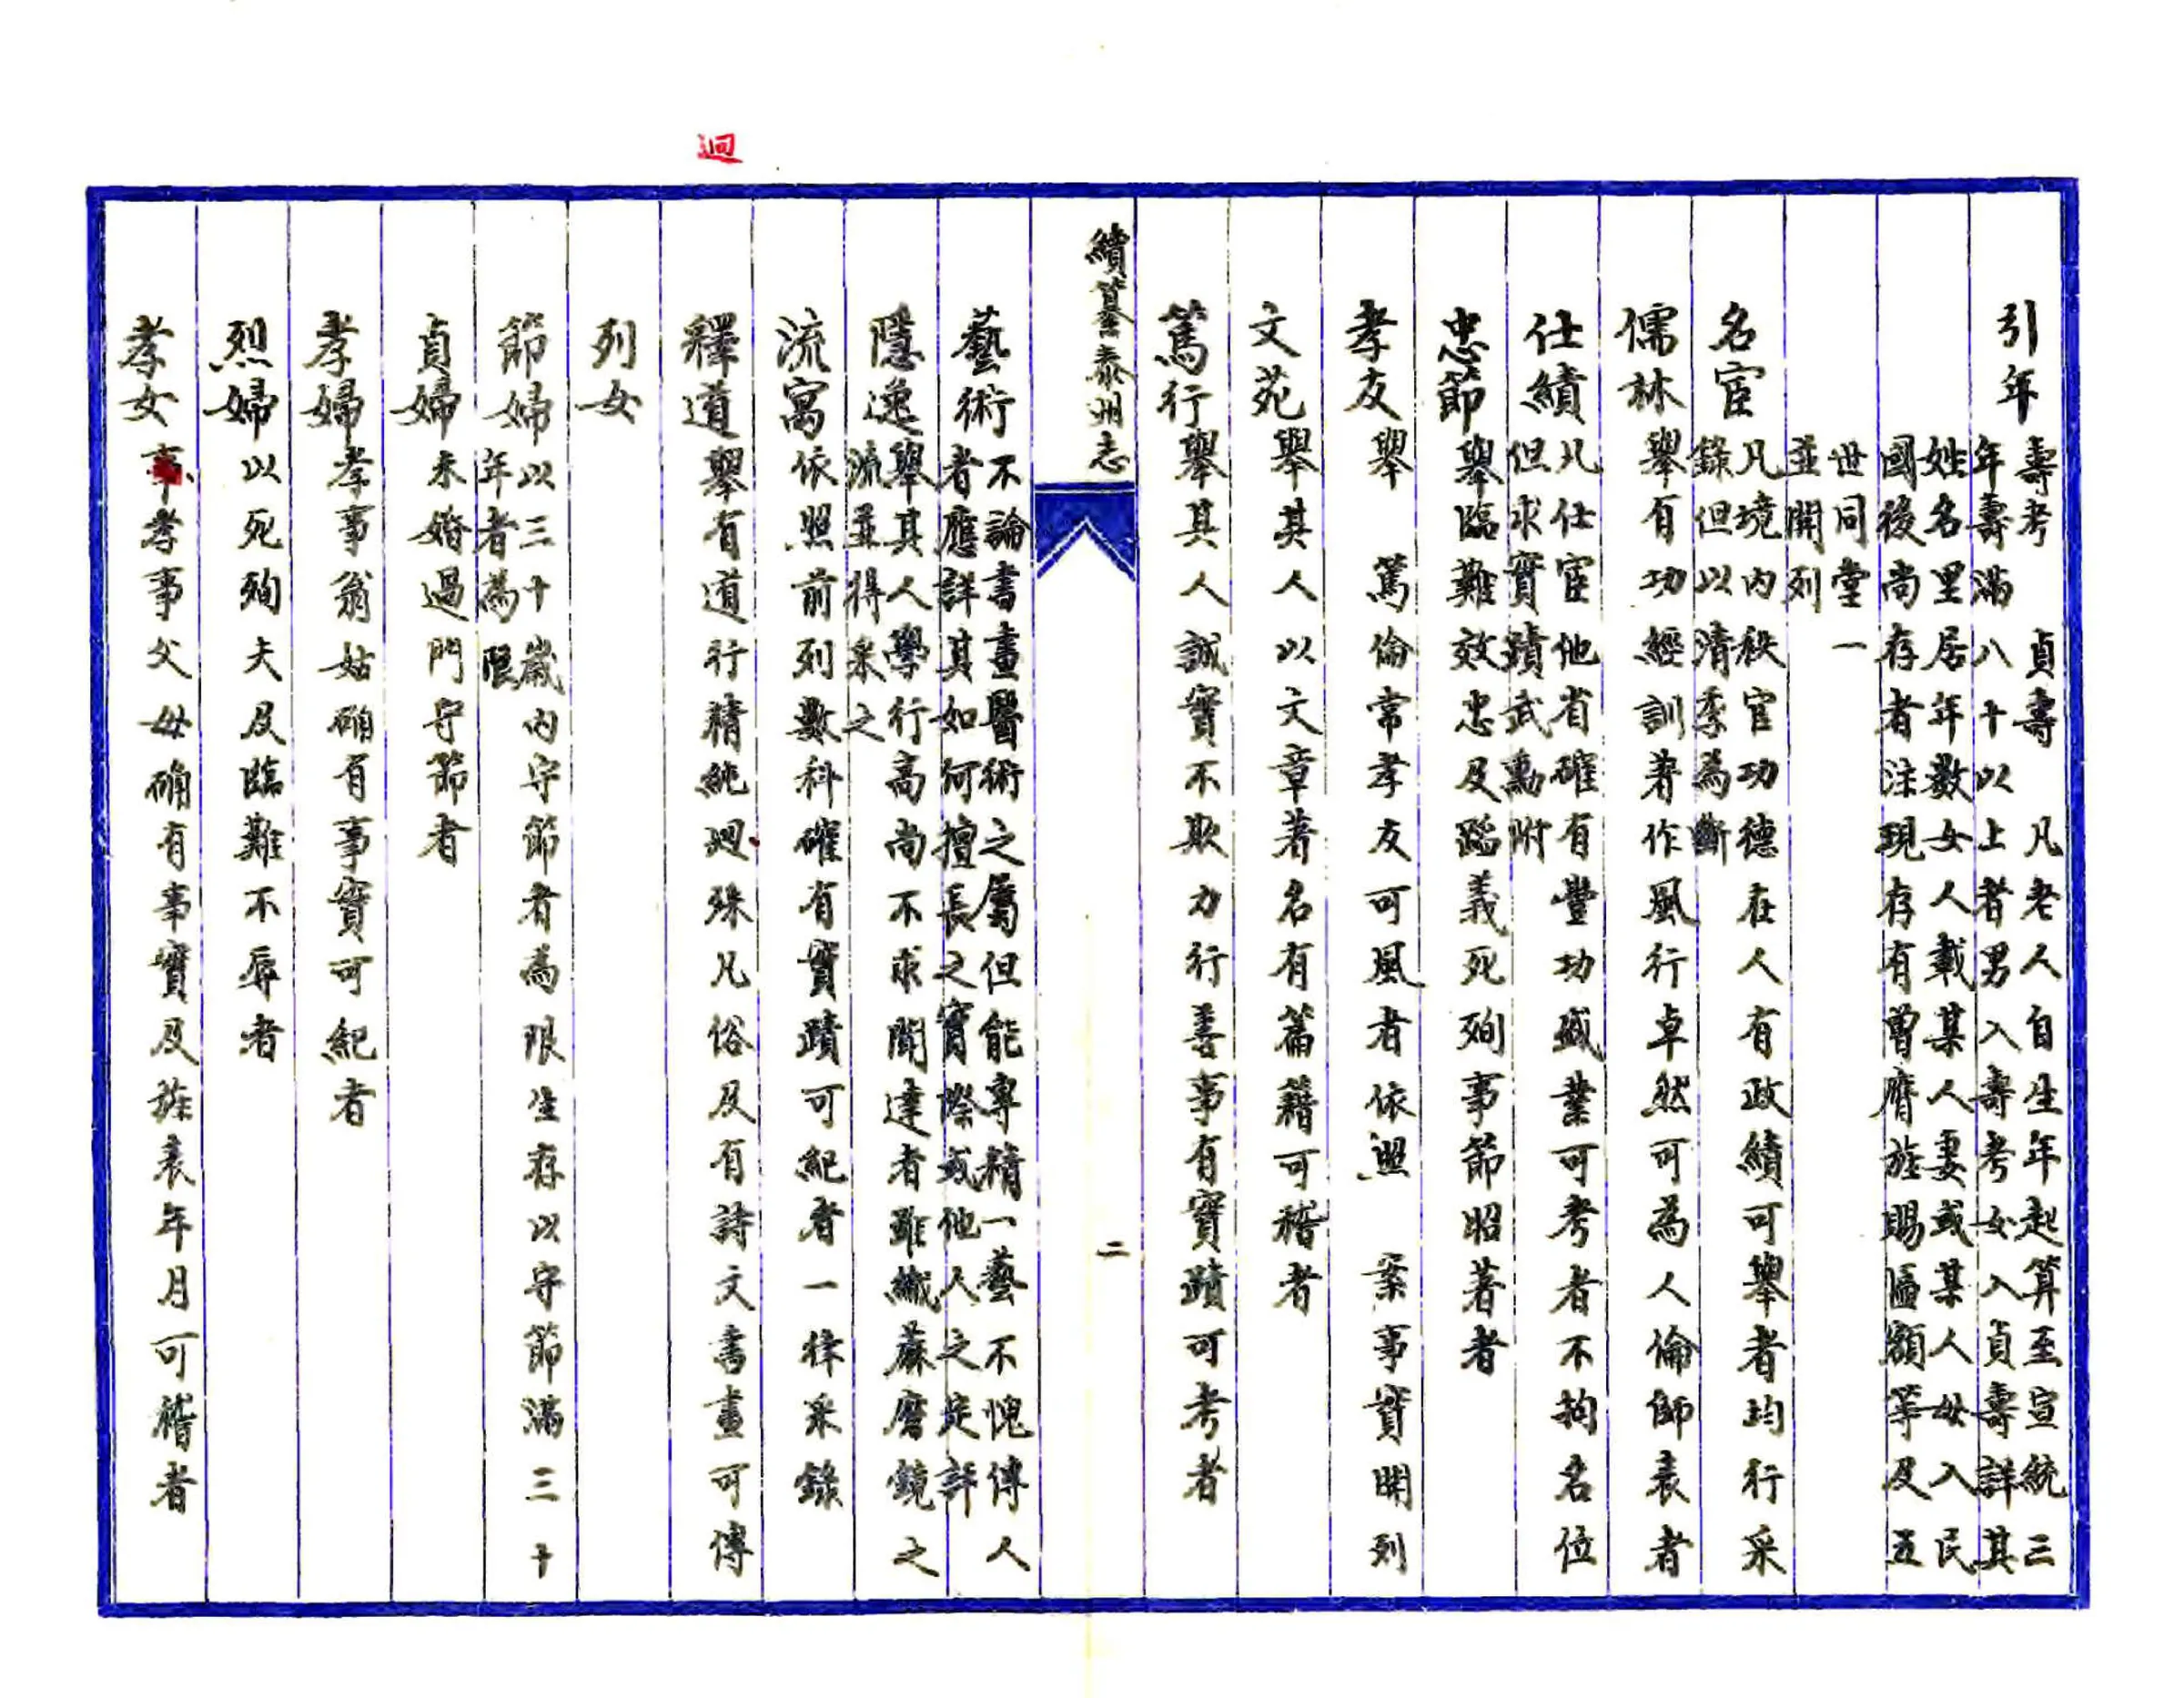 引年 壽考 貞壽 凡老人自生年起算至宣統三
年壽滿八十以上者男入壽考女入貞壽詳其
姓名里居年數女人載某人妻或某人母入民
國後尚存者注現存有曾膺旌賜匾額等及五
世同堂一
並開列
名宦 凡境內秩官功德在人有政績可舉者均行采
錄但以清季為斷
儒林 舉有功經訓著作風行卓然可為人倫師表者
仕績 凡仕宦他省確有豐功盛業可考者不拘名位
但求實蹟武勳附
忠節 舉臨難效忠及蹈義死殉事節昭著者
孝友 舉 篤倫常孝友可風者依照 案事實開列
文苑 舉其人以文章著名有篇籍可稽者
篤行 舉其人誠實不欺力行善事有實蹟可考者
續纂泰州志 二
藝術 不論書畫醫術之屬但能專精一藝不愧傳人
者應詳其如何擅長之實際或他人之定評
隱逸 舉其人學行高尚不求聞達者雖織蔴磨鏡之
流並得采之
流寓 依照前列數科確有實蹟可紀者一律采錄
迥
釋道 舉有道行精純迥殊凡俗及有詩文書畫可傳
列女
節婦 以三十歲內守節者為限生存以守節滿三十
年者為限
貞婦 未婚過門守節者
孝婦 孝事翁姑確有事實可紀者
烈婦 以死殉夫及臨難不辱者
孝女 孝事父母確有事實及旌表年月可稽者